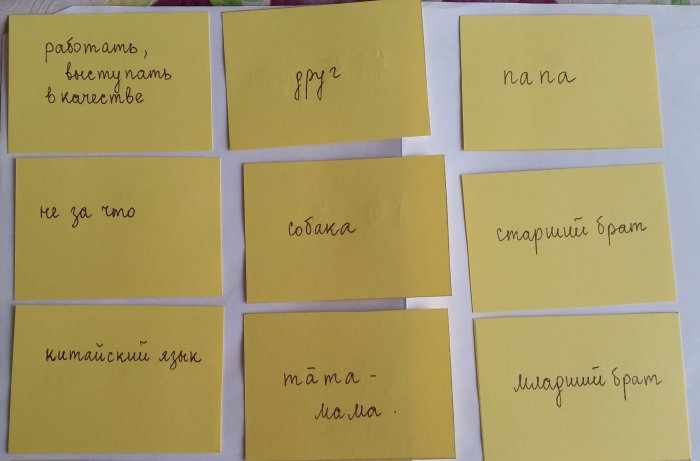 работать,
выступать
в качестве
друг
папа
не за что
собака
старший брат
китайский язык
тāта –
мама.
младший брат